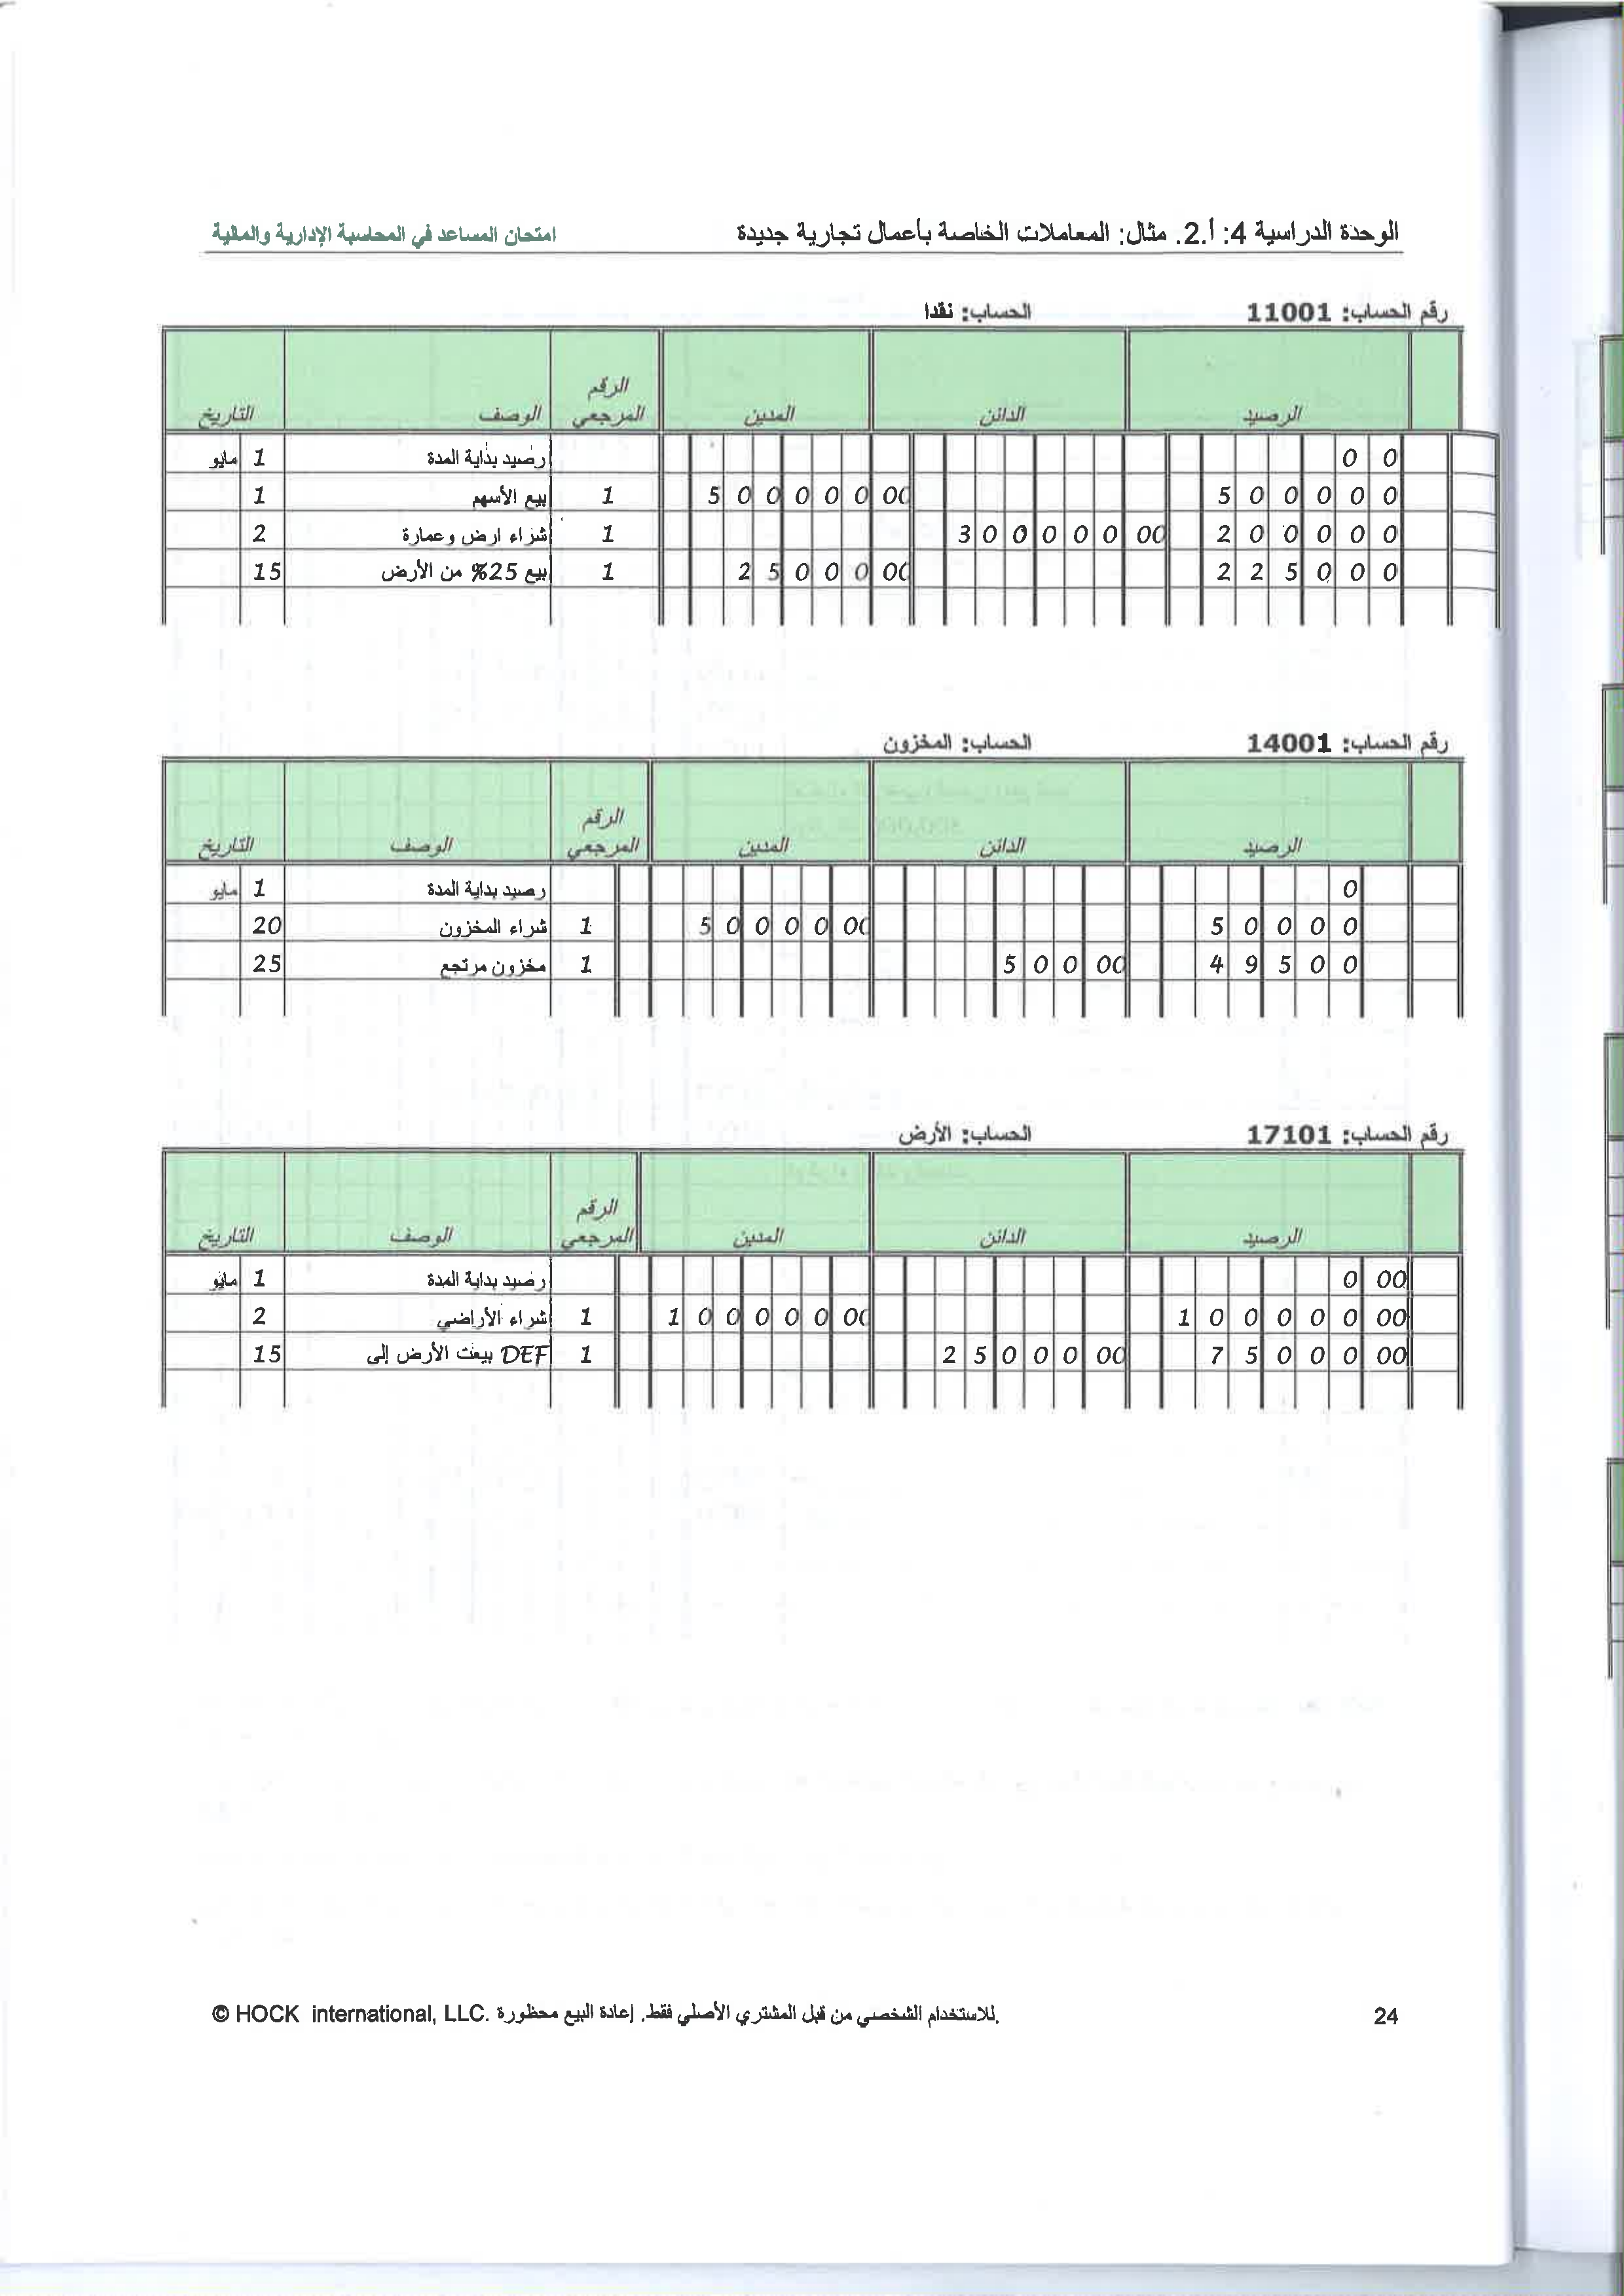 الوحدة الدراسية 4: أ.2. مثال: المعاملات الخاصة بأعمال تجارية جديدة امتحان المساعد في المحاسبة الإدارية والمالية
رقم الحساب: 11001 الحساب: نقدا
التاريخ الوصف الرقم المرجعي المدين الدائن الرصيد
مايو 1 رصيد بداية المدة 0 0
1 بيع الأسهم 1 5 0 0 0 0 0 00 5 0 0 0 0 0
2 شراء ارض وعمارة 1 3 0 0 0 0 0 00 2 0 0 0 0 0
15 بيع 25% من الأرض 1 2 5 0 0 0 00 2 2 5 0 0 0
رقم الحساب: 14001 الحساب: المخزون
التاريخ الوصف الرقم المرجعي المدين الدائن الرصيد
مايو 1 رصيد بداية المدة 0
20 شراء المخزون 1 5 0 0 0 0 00 5 0 0 0 0
25 مخزون مرتجع 1 5 0 0 00 4 9 5 0 0
رقم الحساب: 17101 الحساب: الأرض
التاريخ الوصف الرقم المرجعي المدين الدائن الرصيد
مايو 1 رصيد بداية المدة 0 00
2 شراء الأراضي 1 1 0 0 0 0 0 00 1 0 0 0 0 0 00
15 DEF بيعت الأرض إلى 1 2 5 0 0 0 00 7 5 0 0 0 00
© HOCK international, LLC. للاستخدام الشخصي من قبل المشتري الأصلي فقط. إعادة البيع محظورة. 24